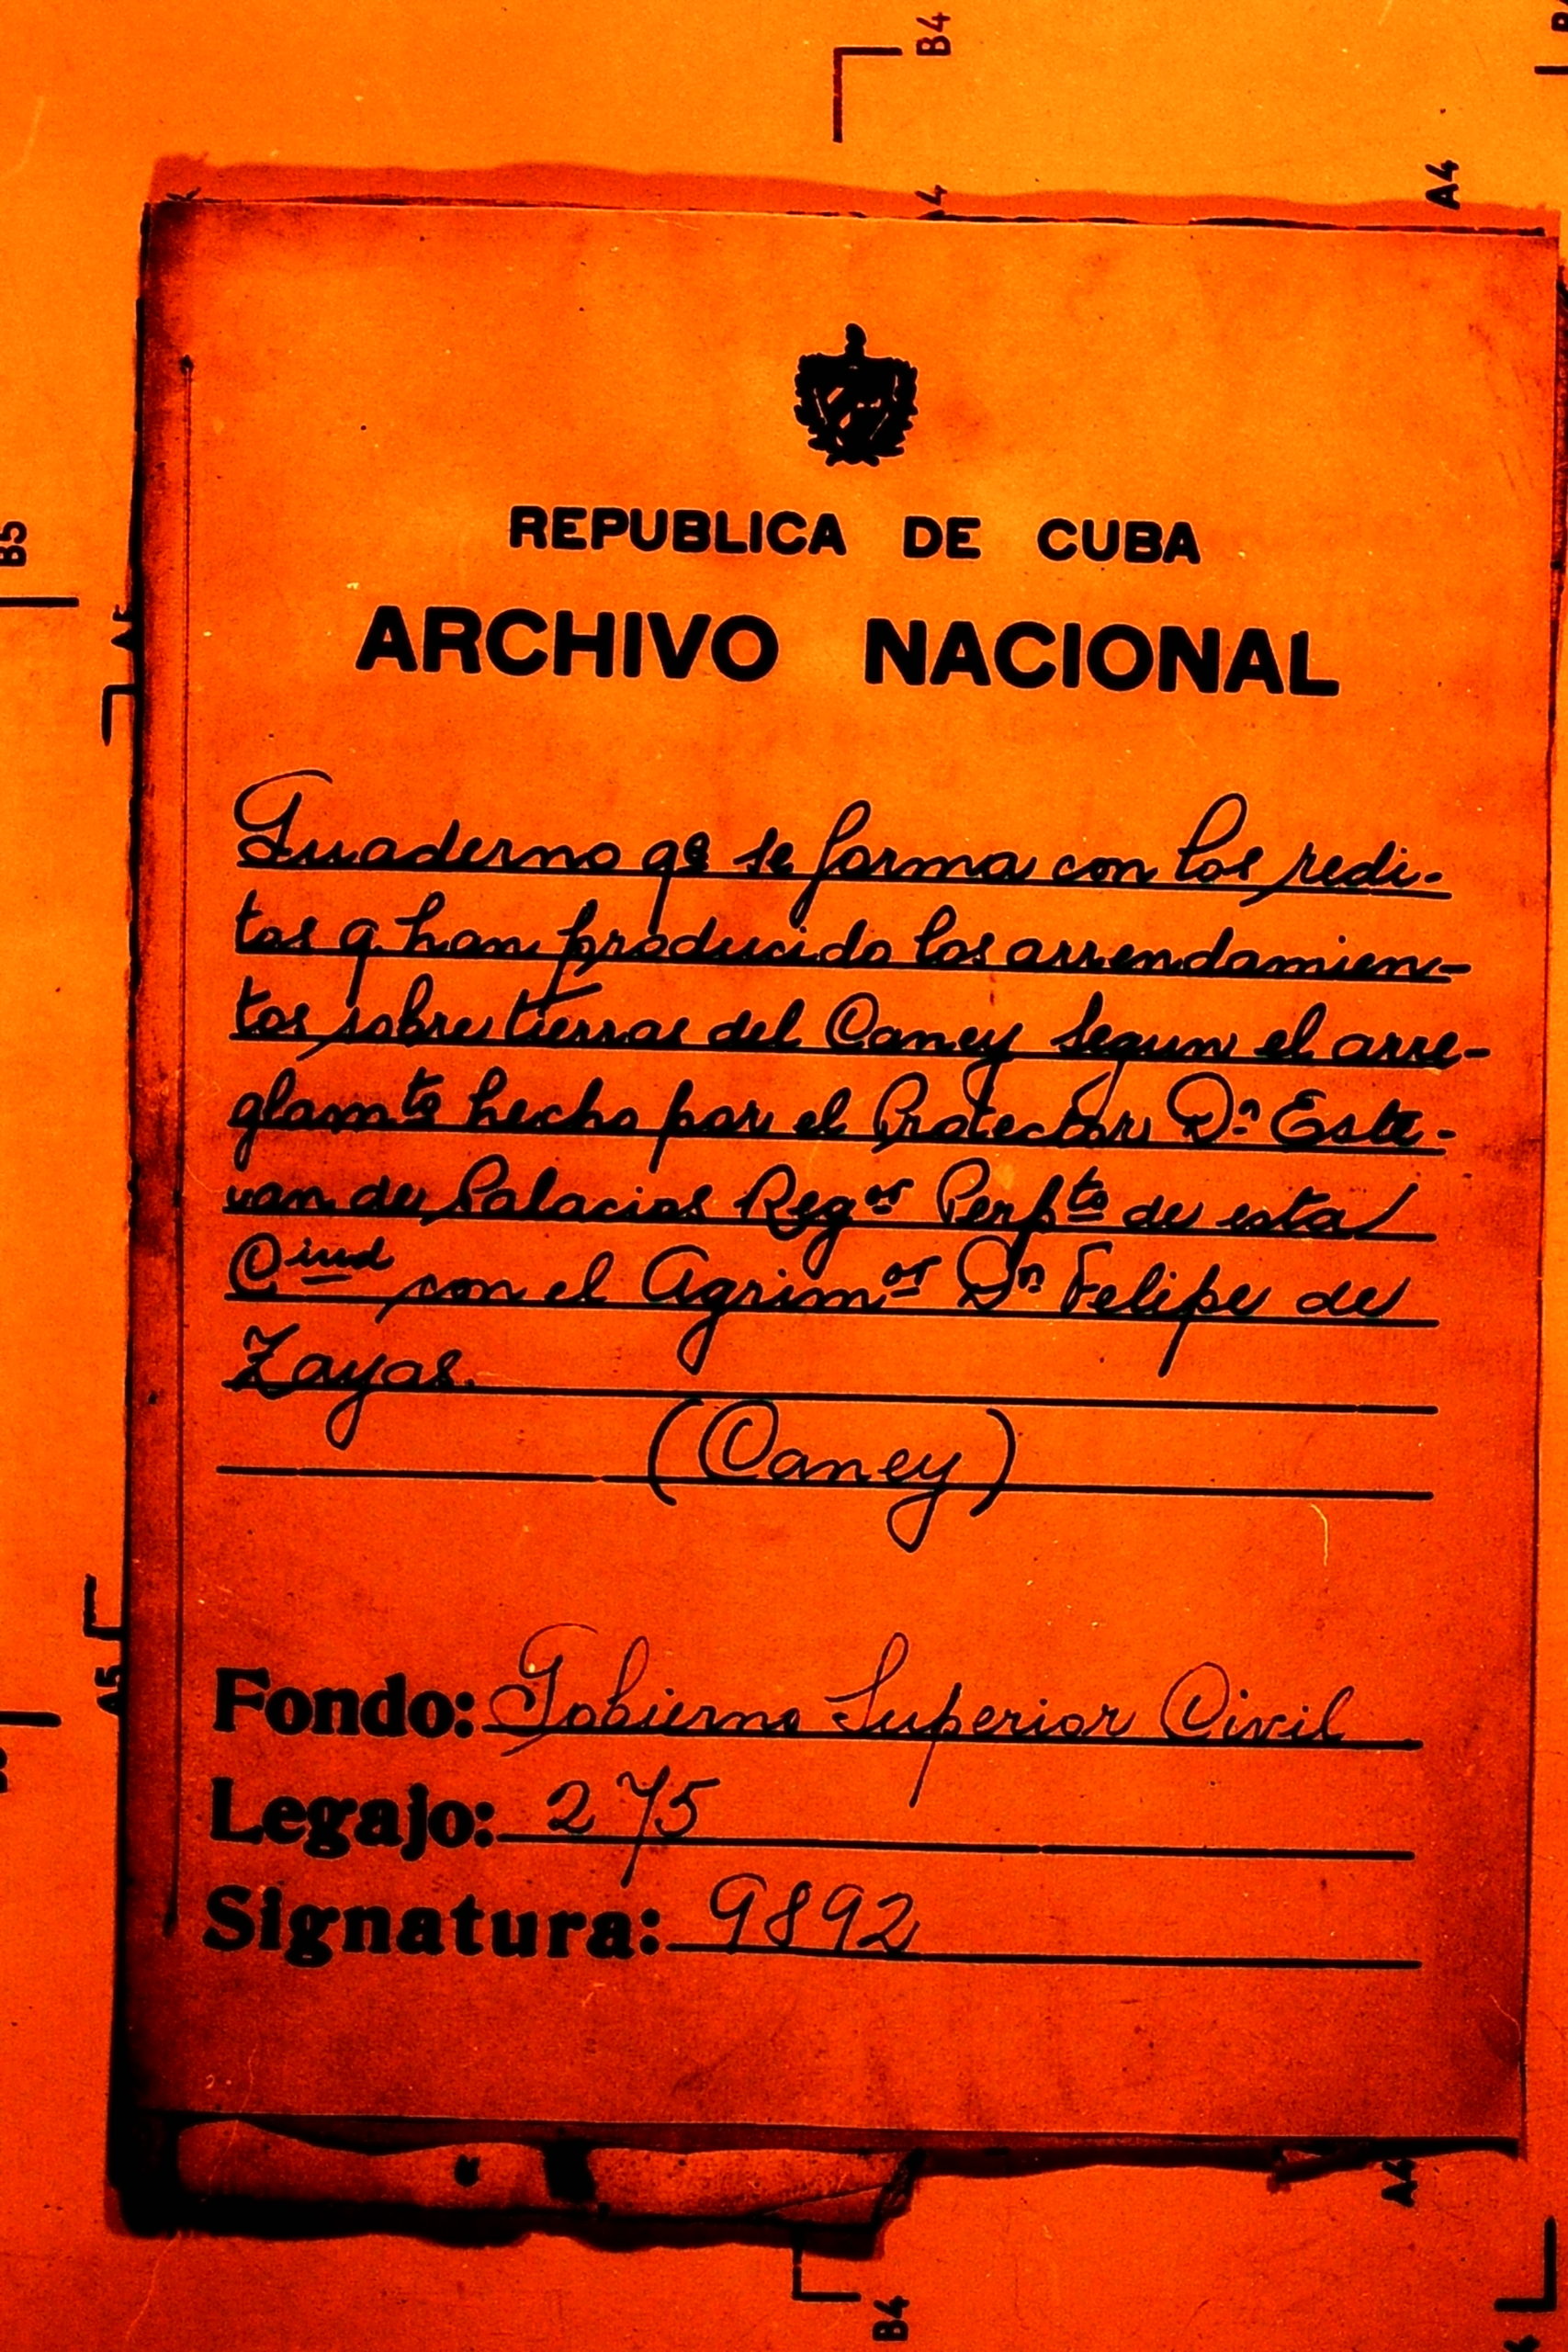 B4
A4
4
B5
REPUBLICA DE CUBA
ARCHIVO NACIONAL
Cuaderno qe se forma con los redi-
tos q han producido los arrendamien-
tos sobre tierras del Caney segun el arre-
glamto hecho por el Protector Dn Este-
van de Palacios Regor Perpto de esta
Ciud con el Agrimor Dn Felipe de
Zayas.
(Caney)
A5
Fondo: Gobierno Superior Civil
Legajo: 275
Signatura: 9892
B4